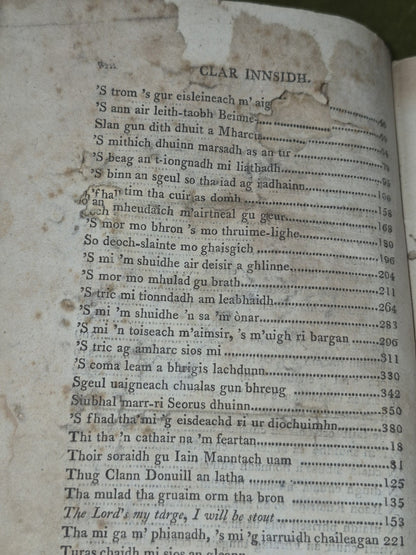 CLAR INNSIDH.
'S trom 's gur eisleineach m' aig
'S ann air leith-taobh Beinne
Slan gun dith dhuit a Mharcuis 64
'S mithich dhuinn marsadh as an tir
'S beag an t-iongnadh mi liathadh 79
'S binn an sgeul so tha iad ag radhainn 95
tim tha cuir as domh 106
mheudaich m'airtneal gu geur 158
'S mor mo bhron 's mo thruime-lighe 169
So deoch-slainte mo ghaisgich 180
'S mi 'm shuidhe air deisir a ghlinne 196
'S mor mo mhulad gu brath 204
'S tric mi tionndadh am leabhaidh 211
'S mi 'm shuidhe 'n sa 'm ònar 264
'S mi 'n toiseach m'aimsir, 's m'uigh ri bargan 283
'S tric ag amharc sios mi 206
'S coma leam a bhrigis lachdunn 311
Sgeul uaigneach chualas gun bhreug 330
Siubhal marr-ri Seorus dhuinn 342
'S fhad tha mi 'g eisdeachd ri ur diochuimhn 350
Thi tha 'n cathair na 'm feartan 380
Thoir soraidh gu Iain Manntach uam 18
Thug Clann Donuill an latha 31
Tha mulad tha gruaim orm tha bron 125
The Lord's my targe, I will be stout 135
Tha mi ga m' phianadh, 's mi 'g iarruidh chaileagan 153
Turas chaidh mi sios an 221